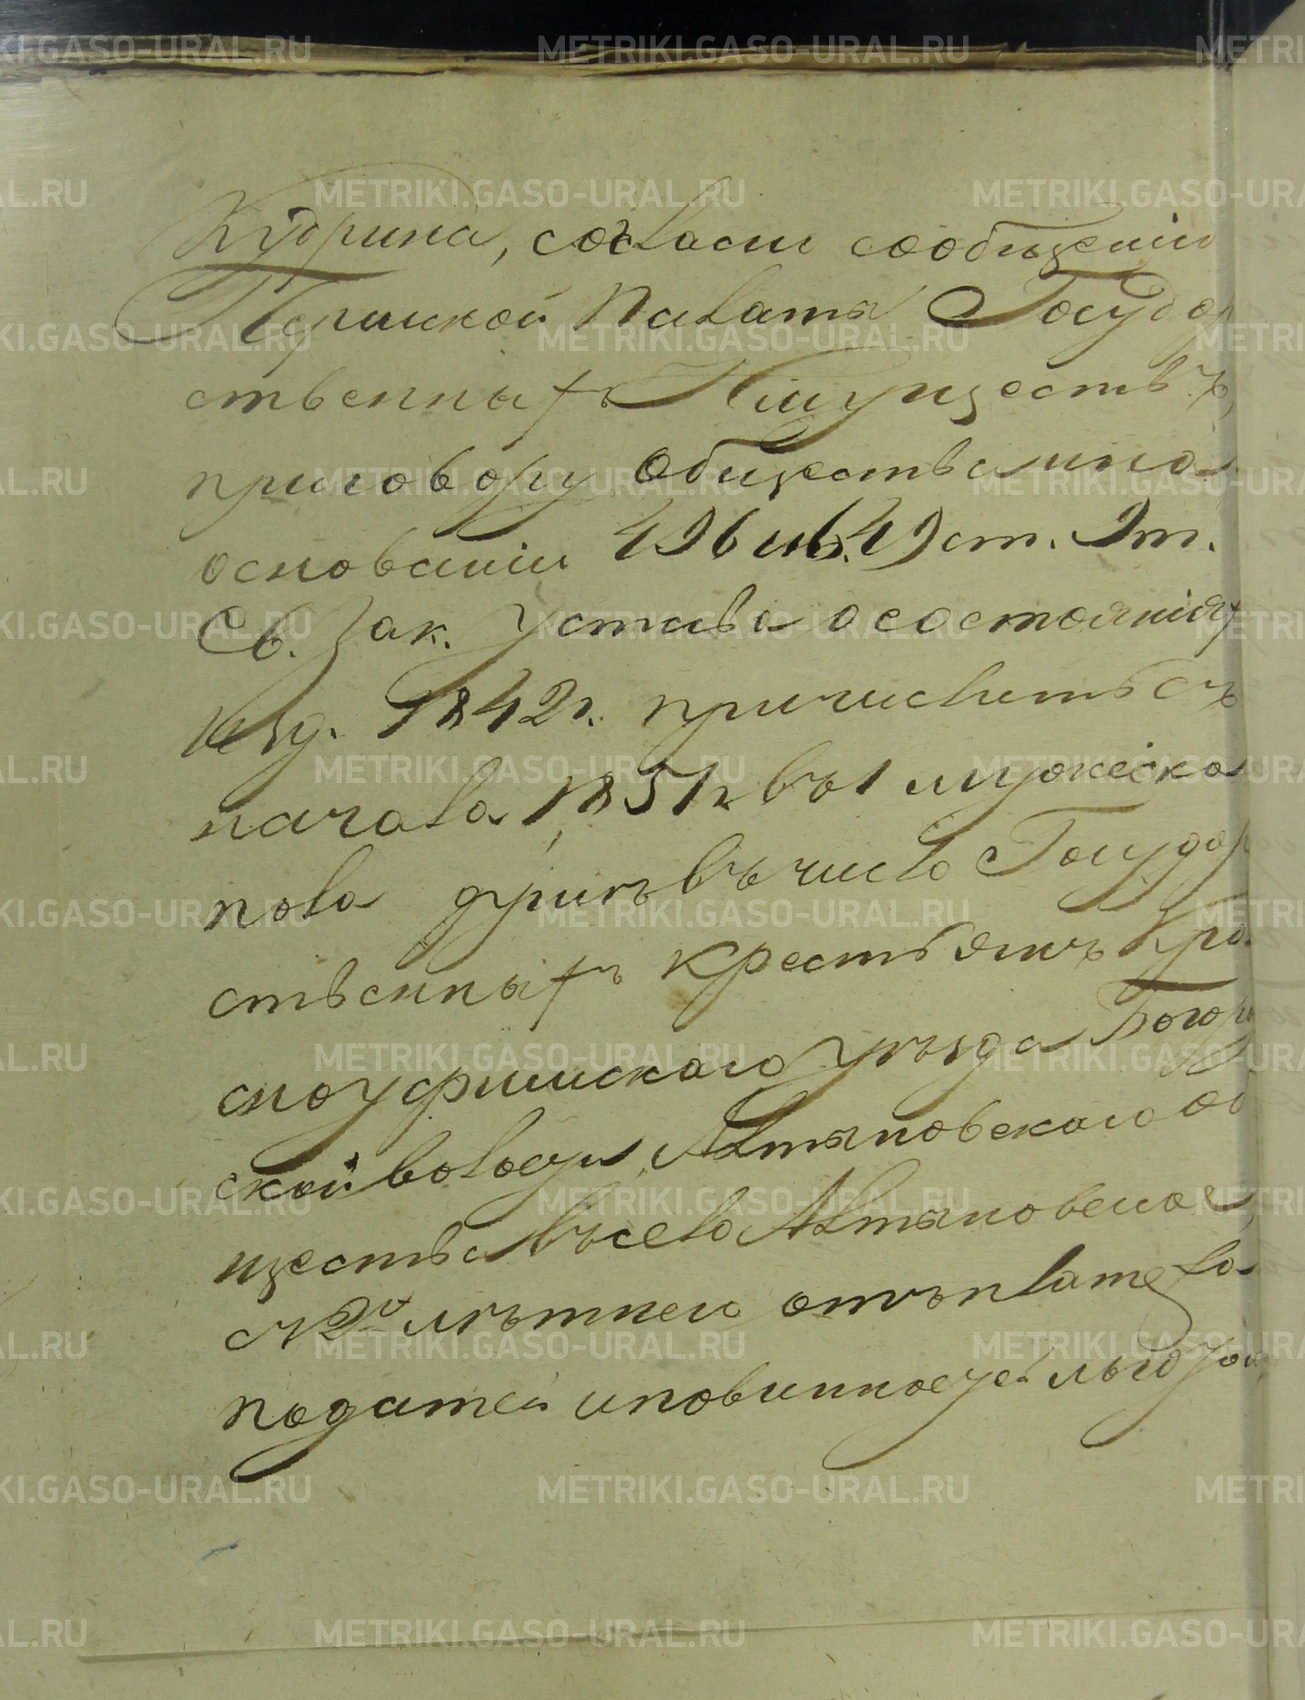 Кудрина, согласно сообщенію
Пермской Палаты Государ
ственныхъ Имуществъ,
приговору Общества и на
основаніи 496 и 649 ст. 9 т.
Св. Зак. Устава о состояніях
изд. 1842 г. причислить съ
начала 1851 г. въ 1 мужеска
пола душъ въ число Государ
ственныхъ крестьянъ Кра
сноуфимскаго уѣзда
ской волости, Алтыновскаго об
щества въ село Алтыновское,
съ 2х лѣтнею отъ платежа
податей и повинностей льготою
METRIKI.GASO-URAL.RU